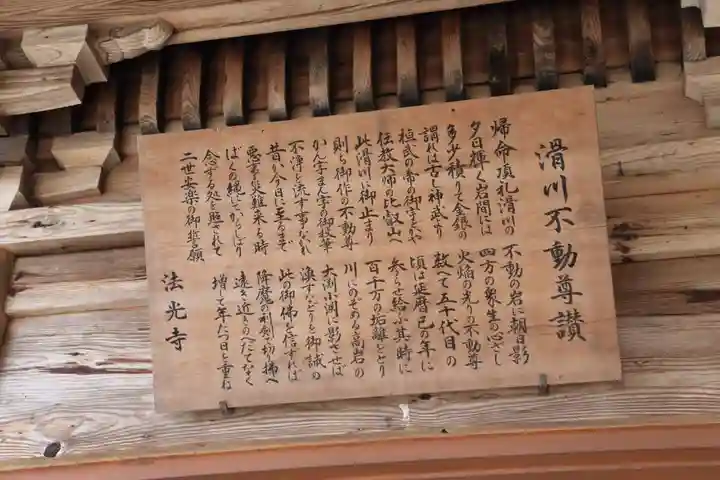 滑川不動尊讃
帰命頂礼滑川の 不動の岩に朝日影
夕日輝く岩間には 四方の衆生の心ざし
多少積りて金銀の 火焔の光りの不動尊
謂れは古し神武より 数へて五十代目の
桓武の帝の御字とかや 頃は延暦己の年に
伝教大師の比叡山へ 参らせ給ふ其時に
此滑川に御止まり 百千万の垢離をとり
則ち御作の不動尊 川にのぞめる高岩の
かん字まん字の御 筆 大渕小渕に影させば
不浄を流す事なかれ すなどりを御誡の
昔が今日に至るまで 此の御佛を信ずれば
悪事災難来る時 降魔の利剣で切り拂へ
ばくの縄にてからしばり 遠き近きのへだてなく
念ずる処を照されて 増て年たつ日と重ね
二世安楽の御誓願
法光寺